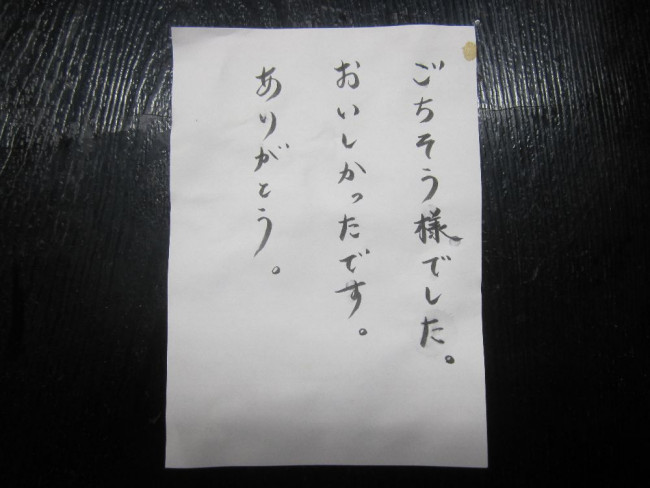 ごちそう様でした。
おいしかったです。
ありがとう。